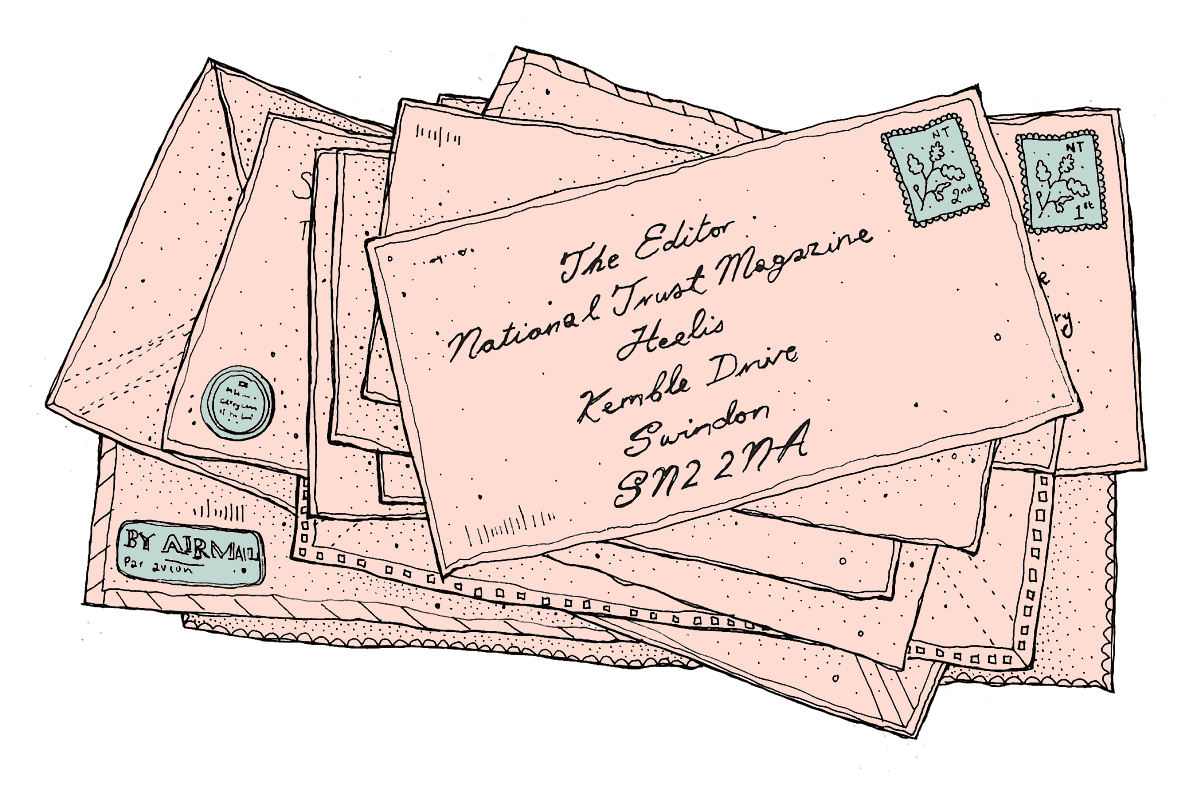 NT
2nd
The Editor
National Trust Magazine
Heelis
Kemble Drive
Swindon
SN2 2NA
NT
1st
ry
BY AIRMAIL
Par avion